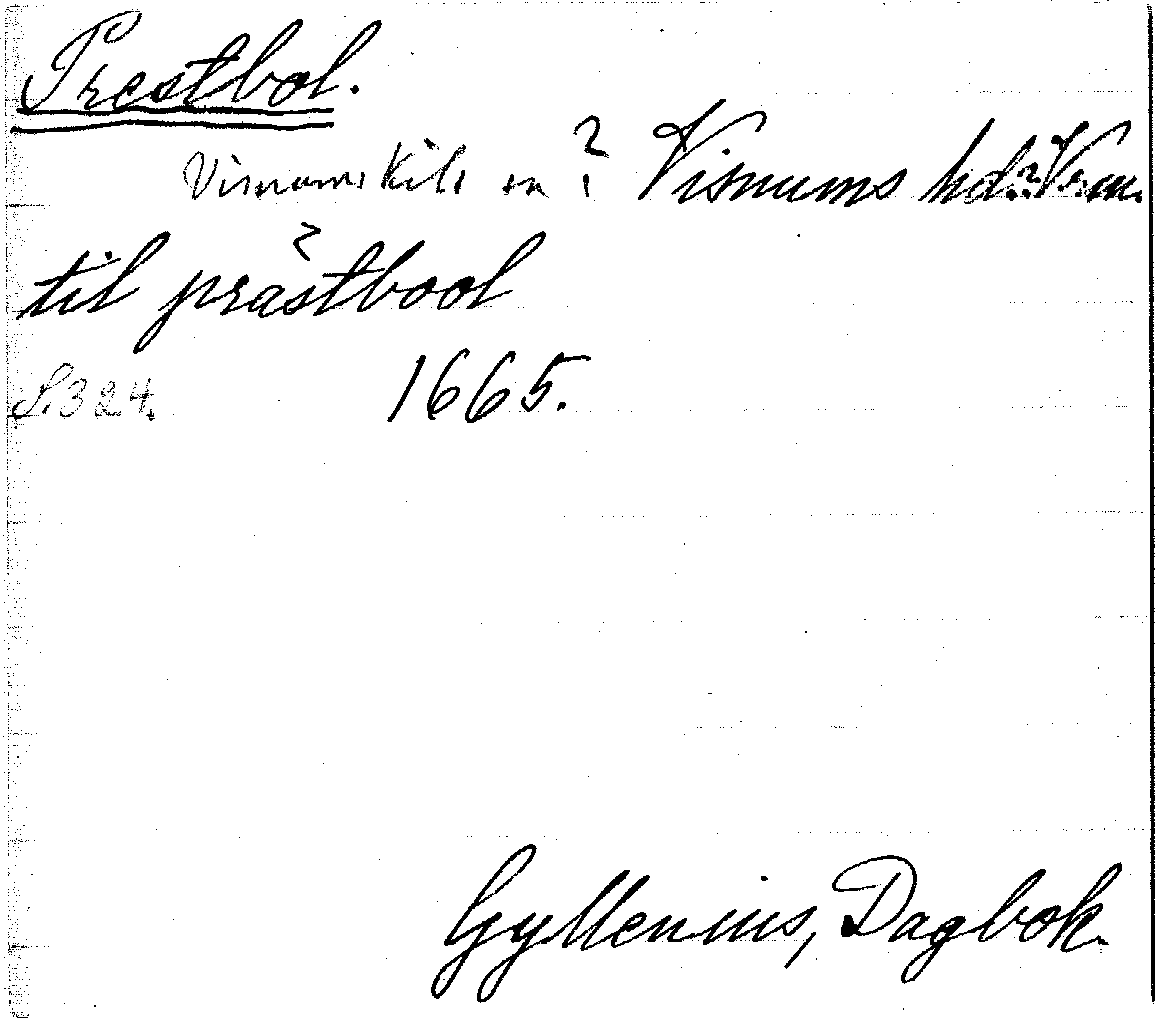 Prestbol.
Visnums Kils sn ? Visnums hd.? Verm.
til prästbool
S. 324. 1665.
Gyllenius, Dagbok.